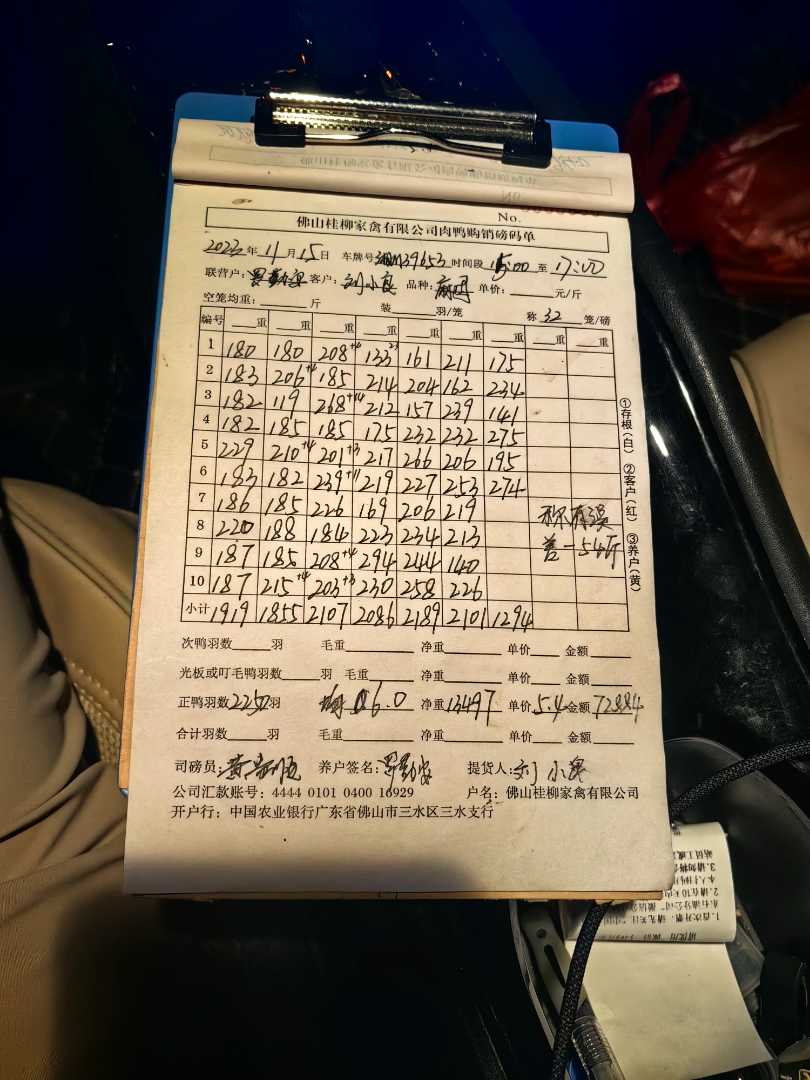 No.
佛山桂柳家禽有限公司肉鸭购销磅码单
2023年11月15日 车牌号 39653 时间段 15:00 至 17:00
联营户: 客户:刘小良 品种: 单价:____元/斤
空笼均重:____斤 装____羽/笼 称 32 笼/磅
编号 __重 __重 __重 __重 __重 __重 __重 __重 __重
1 180 180 208+4 133 23 161 211 175
2 183 206+4 185 214 204 162 234
3 182 119 268+14 212 157 239 141
4 182 185 185 175 232 232 275
5 229 210+4 201+3 217 266 206 195
6 183 182 239+11 219 227 253 274
7 186 185 226 169 206 219
8 220 188 184 223 234 213
9 187 185 208+4 294 244 140
10 187 215+4 203+3 230 258 226
小计 1919 1855 2107 2086 2189 2101 1294
称有误
差-54斤
①存根(白) ②客户(红) ③养户(黄)
次鸭羽数____羽 毛重____ 净重____ 单价____ 金额____
光板或叮毛鸭羽数____羽 毛重____ 净重____ 单价____ 金额____
正鸭羽数2250羽 6.0 净重13497 单价5.4 金额72884
合计羽数____羽 毛重____ 净重____ 单价____ 金额____
司磅员: 养户签名: 提货人:刘小良
公司汇款账号: 4444 0101 0400 16929 户名: 佛山桂柳家禽有限公司
开户行: 中国农业银行广东省佛山市三水区三水支行